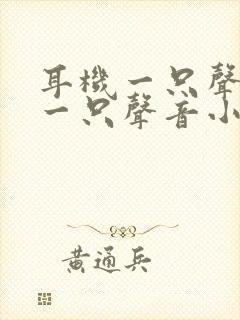 耳機一只聲
一只聲音小
黃通兵